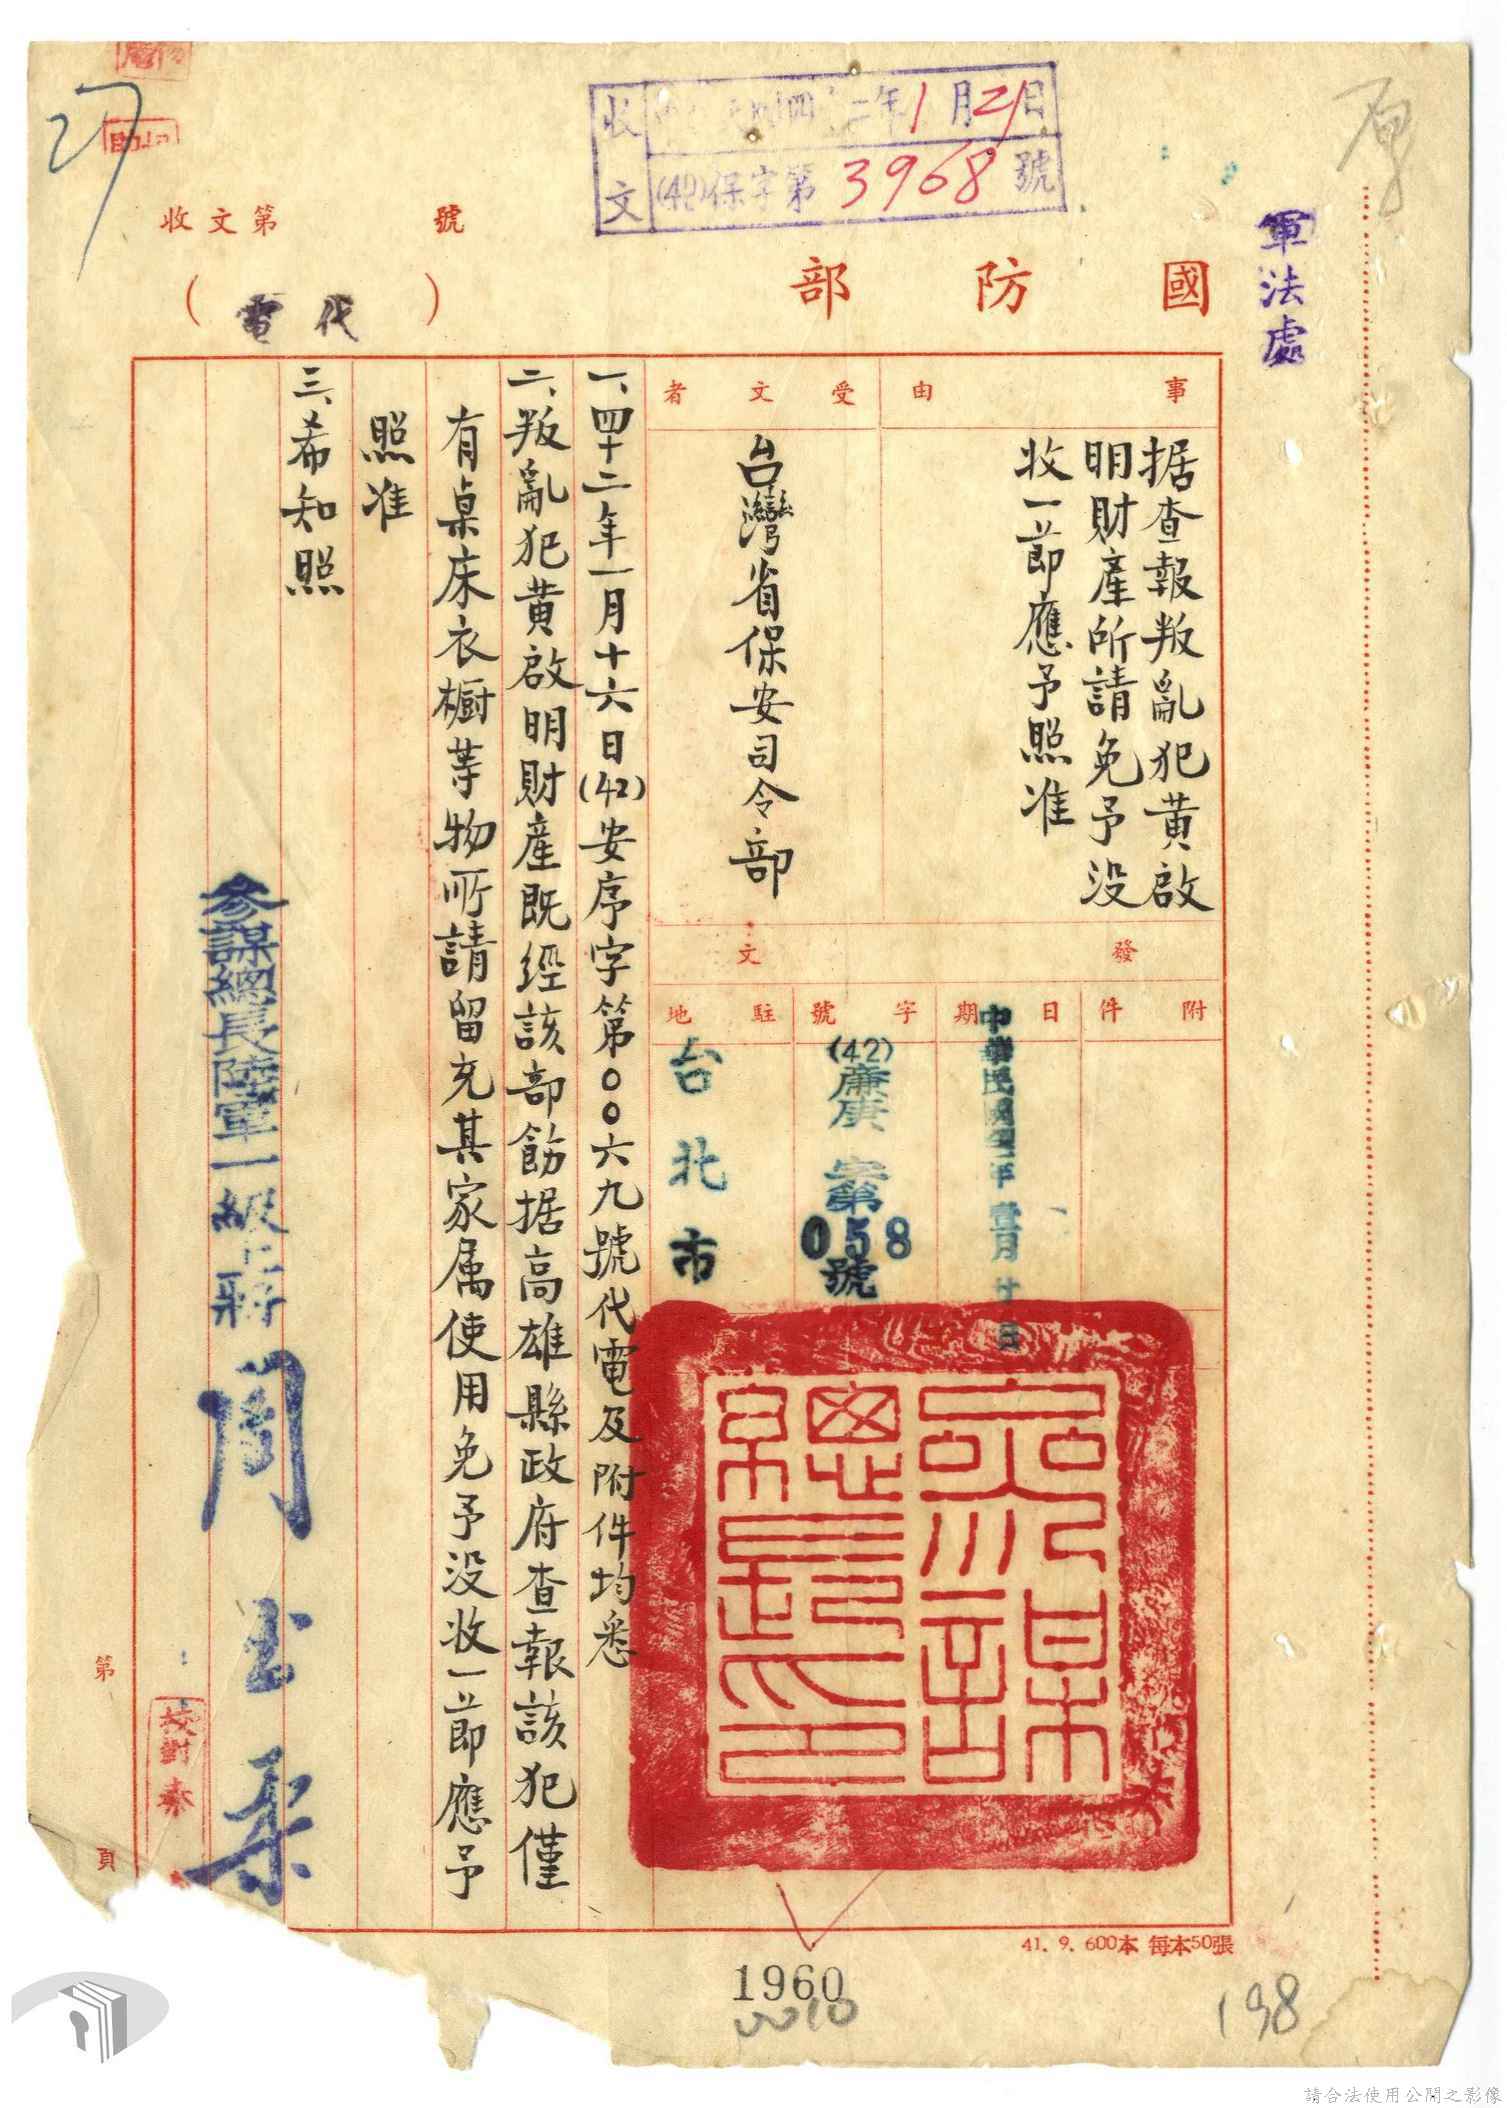 收文
四二年1月21日
(42)保字第3968號
收文第 號
國防部
(代電)
軍法處
事由
据查報叛亂犯黃啟
明財產所請免予没
收一節應予照准
受文者
台灣省保安司令部
發文
附件
日期
中華民國四二年壹月廿日
字號
(42)廉庚字第058號
駐地
台北市
一、四十二年一月十六日(42)安序字第００六九號代電及附件均悉
二、叛亂犯黃啟明財產既經該部飭据高雄縣政府查報該犯僅
有桌床衣橱等物所請留充其家属使用免予没收一節應予
照准
三、希知照
參謀總長陸軍一級上將周至柔
參謀總長之印
校對
第 頁
41. 9. 600本 每本50張
1960
0010
198
27
請合法使用公開之影像